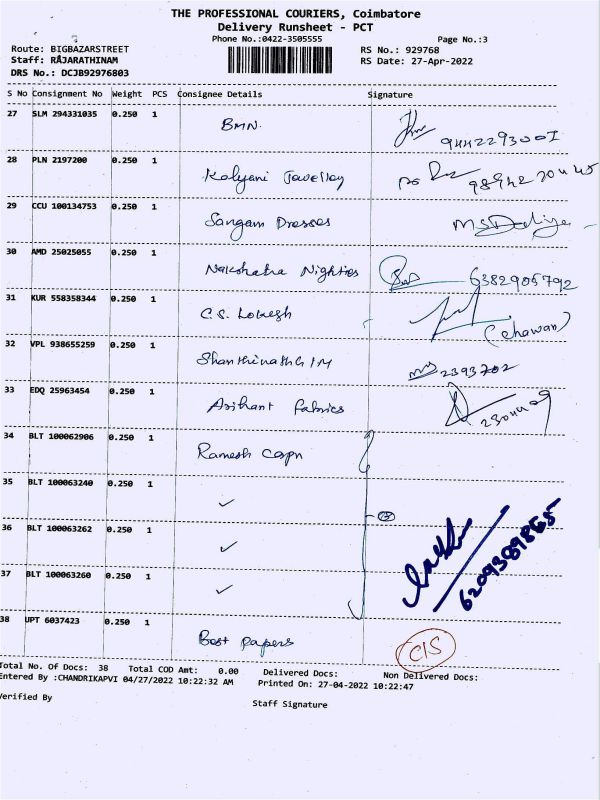 THE PROFESSIONAL COURIERS, Coimbatore
Delivery Runsheet - PCT
Phone No.:0422-3505555 Page No.:3
Route: BIGBAZARSTREET RS No.: 929768
Staff: RAJARATHINAM RS Date: 27-Apr-2022
DRS No.: DCJB92976803
S No Consignment No Weight PCS Consignee Details Signature
27 SLM 294331035 0.250 1 BMN. 9442293001
28 PLN 2197200 0.250 1 Kalyani Jewellay
29 CCU 100134753 0.250 1 Sangam Dresses
30 AMD 25025055 0.250 1 Nakshatra Nighties 6382905792
31 KUR 558358344 0.250 1 C.S. Lokesh (chawan)
32 VPL 938655259 0.250 1 Shanthinath GIM 2393702
33 EDQ 25963454 0.250 1 Arihant Fabrics
34 BLT 100062906 0.250 1 Ramesh Corpn
35 BLT 100063240 0.250 1 ✓
36 BLT 100063262 0.250 1 ✓
37 BLT 100063260 0.250 1 ✓
38 UPT 6037423 0.250 1 Best papers C/S
Total No. Of Docs: 38 Total COD Amt: 0.00 Delivered Docs: Non Delivered Docs:
Entered By :CHANDRIKAPVI 04/27/2022 10:22:32 AM Printed On: 27-04-2022 10:22:47
Verified By Staff Signature